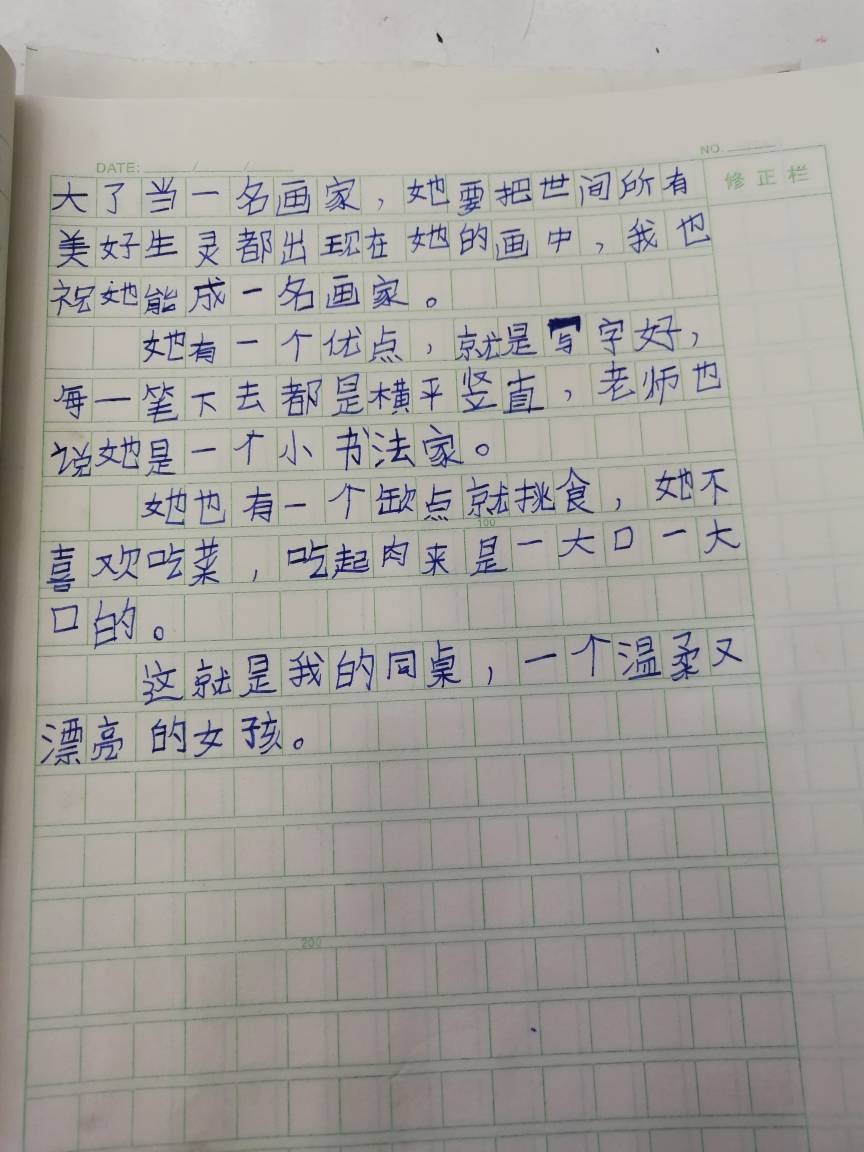 DATE: / / NO.
修正栏
大了当一名画家，她要把世间所有
美好生灵都出现在她的画中，我也
祝她能成一名画家。
她有一个优点，就是写字好，
每一笔下去都是横平竖直，老师也
说她是一个小书法家。
她也有一个缺点就挑食，她不
100
喜欢吃菜，吃起肉来是一大口一大
口的。
这就是我的同桌，一个温柔又
漂亮的女孩。
200